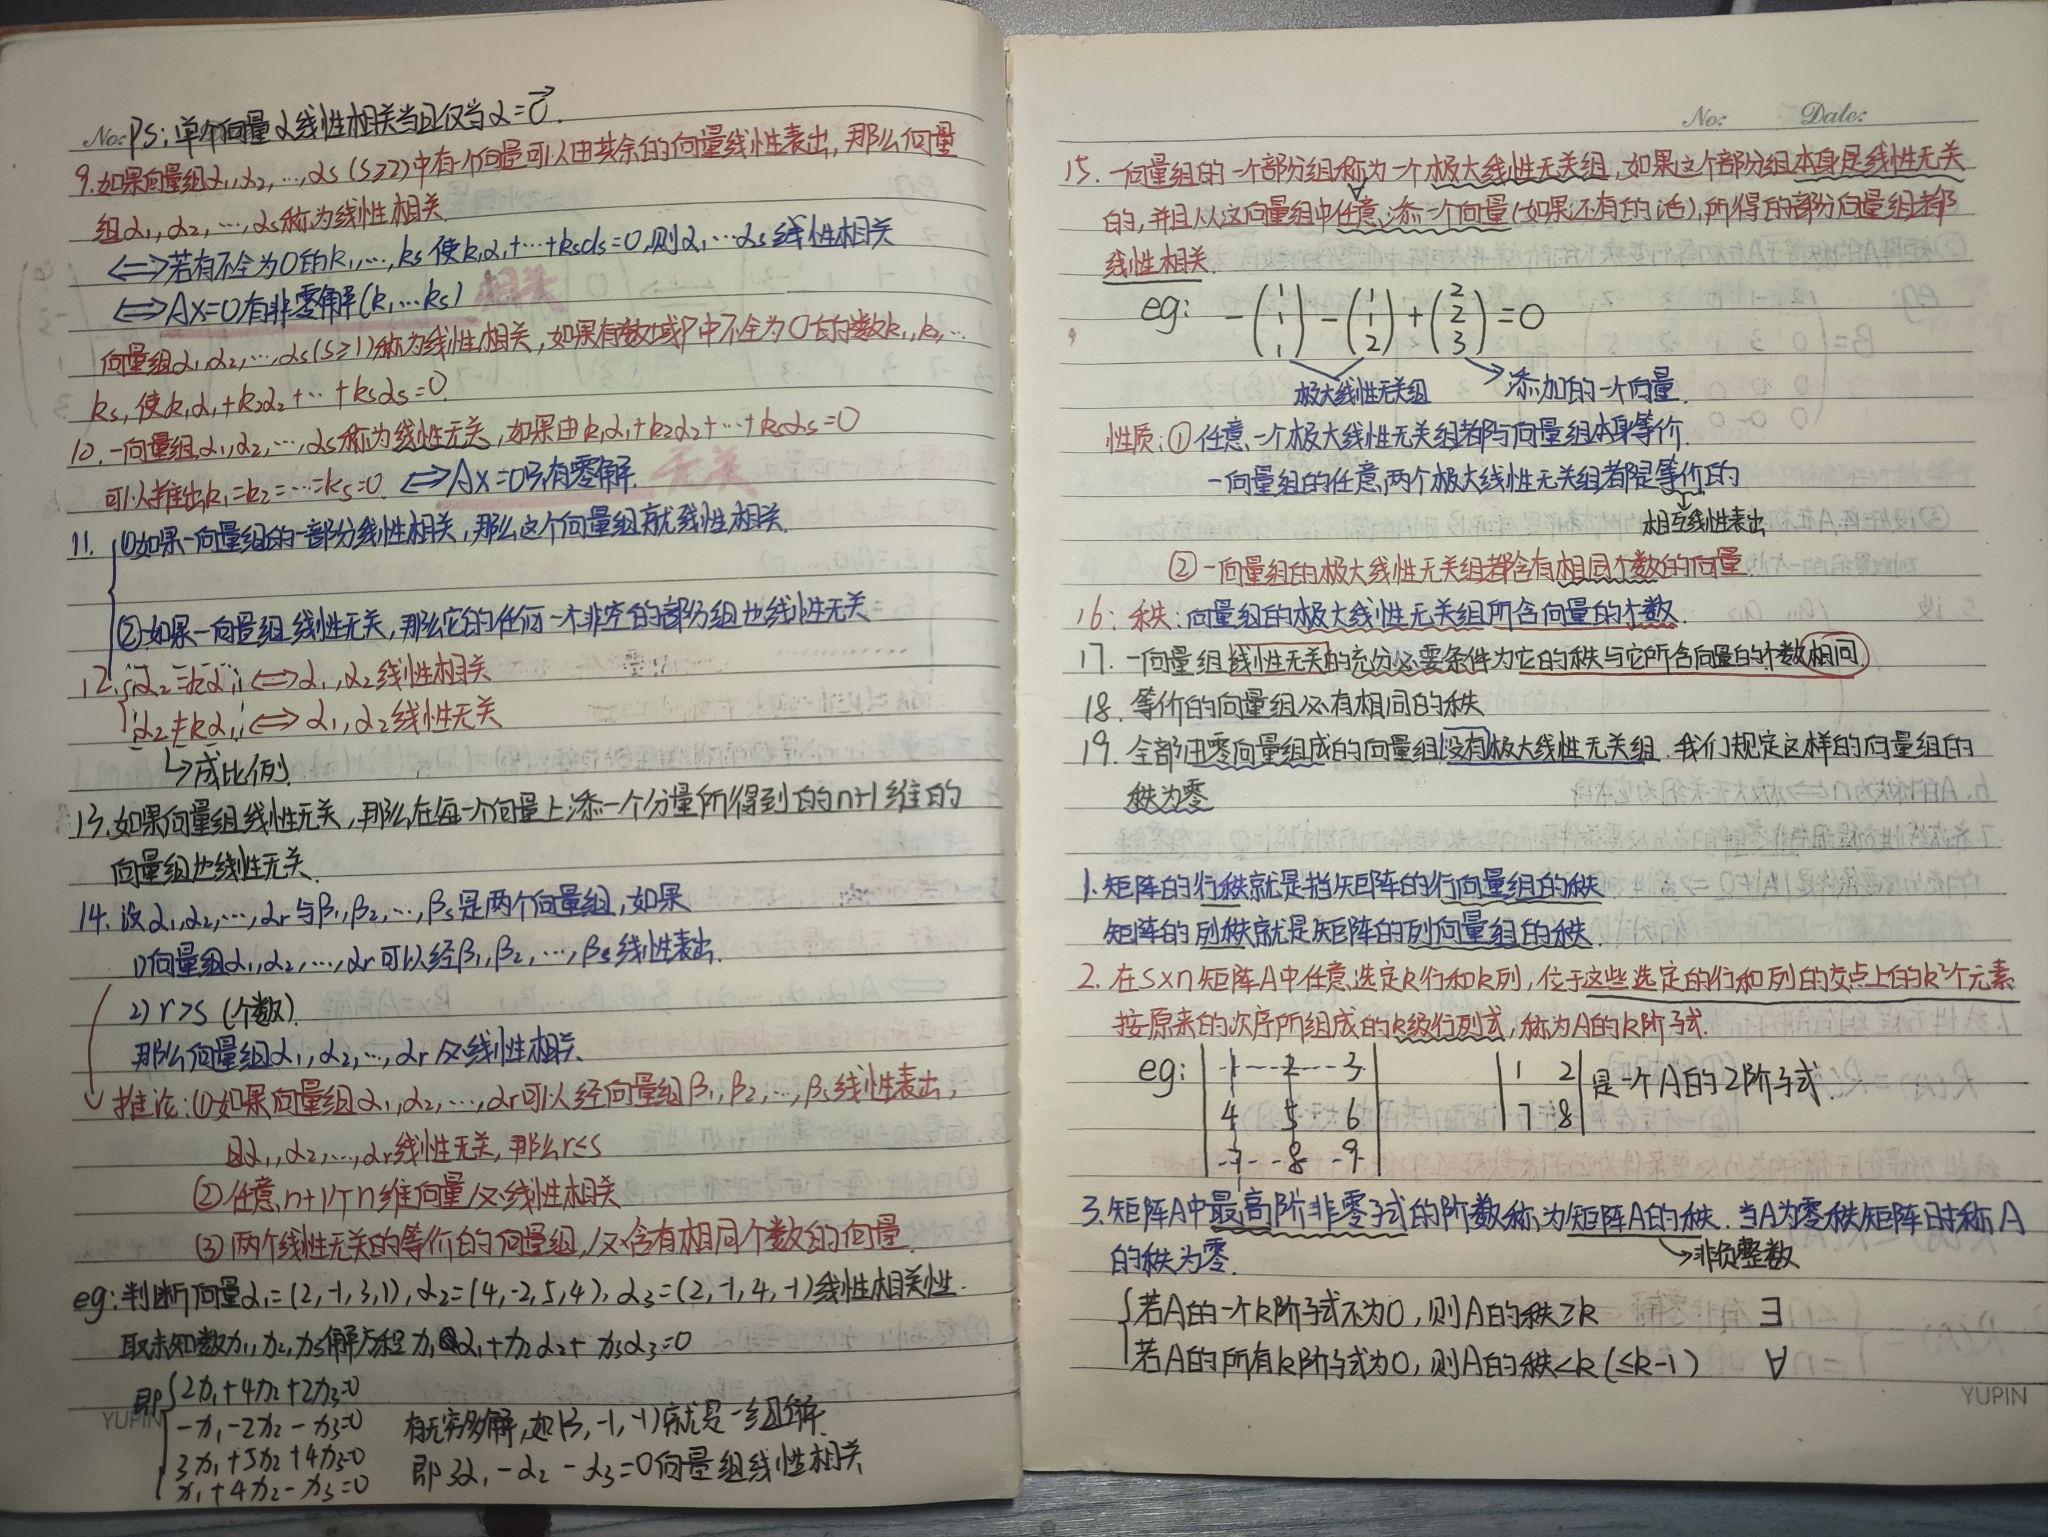 No: PS:单个向量α线性相关当且仅当α=0⃗.
9.如果向量组α₁,α₂,…,αs(s≥2)中有一个向量可以由其余的向量线性表出,那么向量
组α₁,α₂,…,αs称为线性相关.
⟺若有不全为0的k₁,…,ks使k₁α₁+…+ksαs=0,则α₁…αs线性相关
⟺Ax=0有非零解(k₁…ks) 相关
向量组α₁,α₂,…,αs(s≥1)称为线性相关,如果有数域P中不全为0的数k₁,k₂,…
ks,使k₁α₁+k₂α₂+…+ksαs=0.
10.一向量组α₁,α₂,…,αs称为线性无关,如果由k₁α₁+k₂α₂+…+ksαs=0
可以推出k₁=k₂=…=ks=0. ⟺Ax=0只有零解. 无关
11. ①如果一向量组的一部分线性相关,那么这个向量组就线性相关.
②如果一向量组线性无关,那么它的任何一个非空的部分组也线性无关
12. α₂=kα₁⟺α₁,α₂线性相关
α₂≠kα₁⟺α₁,α₂线性无关
↳成比例
13.如果向量组线性无关,那么在每一个向量上添一个分量所得到的n+1维的
向量组也线性无关.
14.设α₁,α₂,…,αr与β₁,β₂,…,βs是两个向量组,如果
1)向量组α₁,α₂,…,αr可以经β₁,β₂,…,βs线性表出.
2)r>s(个数).
那么向量组α₁,α₂,…,αr必线性相关.
推论:①如果向量组α₁,α₂,…,αr可以经向量组β₁,β₂,…,βs线性表出,
且α₁,α₂,…,αr线性无关,那么r≤s
②任意n+1个n维向量必线性相关
③两个线性无关的等价的向量组,必含有相同个数的向量.
eg:判断向量α₁=(2,-1,3,1),α₂=(4,-2,5,4),α₃=(2,-1,4,-1)线性相关性.
取未知数x₁,x₂,x₃解方程x₁α₁+x₂α₂+x₃α₃=0
即{2x₁+4x₂+2x₃=0
-x₁-2x₂-x₃=0 有无穷多解,如(3,-1,-1)就是一组解.
3x₁+5x₂+4x₃=0
x₁+4x₂-x₃=0 即3α₁-α₂-α₃=0向量组线性相关
YUPIN
No: Date:
15.一向量组的一个部分组称为一个极大线性无关组,如果这个部分组本身是线性无关
的,并且从这向量组中任意添一个向量(如果还有的话),所得的部分向量组都
线性相关.
eg: -(1 1 1)-(1 1 2)+(2 2 3)=0
极大线性无关组 添加的一个向量.
性质:①任意一个极大线性无关组都与向量组本身等价.
一向量组的任意两个极大线性无关组都是等价的
相互线性表出
②一向量组的极大线性无关组都含有相同个数的向量.
16:秩:向量组的极大线性无关组所含向量的个数.
17.一向量组线性无关的充分必要条件为它的秩与它所含向量的个数相同.
18.等价的向量组必有相同的秩
19.全部由零向量组成的向量组没有极大线性无关组.我们规定这样的向量组的
秩为零
1.矩阵的行秩就是指矩阵的行向量组的秩.
矩阵的列秩就是矩阵的列向量组的秩.
2.在s×n矩阵A中任意选定k行和k列,位于这些选定的行和列的交点上的k²个元素
按原来的次序所组成的k级行列式,称为A的k阶子式.
eg: |1 2 3| |1 2| 是一个A的2阶子式.
|4 5 6| |7 8|
|7 8 9|
3.矩阵A中最高阶非零子式的阶数称为矩阵A的秩.当A为零秩矩阵时称A
的秩为零. 非负整数
{若A的一个k阶子式不为0,则A的秩≥k ∃
若A的所有k阶子式为0,则A的秩<k(≤k-1) ∀
YUPIN